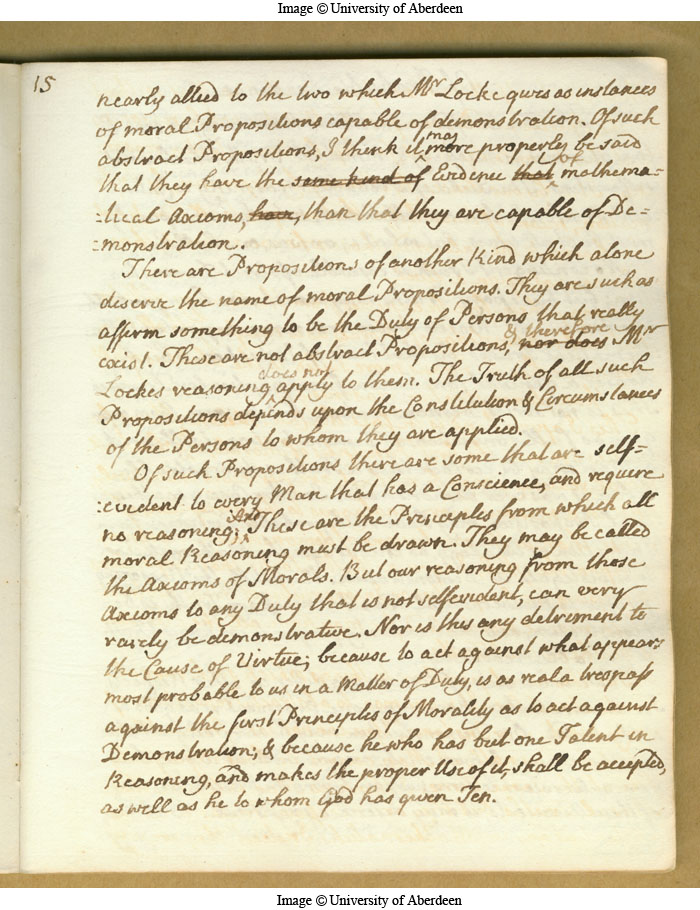 Image © University of Aberdeen
15
nearly allied to the two which Mr Locke gives as instances
of moral Propositions capable of demonstration. Of such
abstract Propositions, I think it may more properly be said
that they have the same kind of Evidence that of mathema-
-tical Axioms, have, than that they are capable of De-
-monstration.
There are Propositions of another Kind which alone
deserve the name of moral Propositions. They are such as
affirm something to be the Duty of Persons that really
exist. These are not abstract Propositions, nor does & therefore Mr
Lockes reasoning does not apply to them. The Truth of all such
Propositions depends upon the Constitution & Circumstances
of the Persons to whom they are applied.
Of such Propositions there are some that are self-
-evident to every Man that has a Conscience, and require
no reasoning; And These are the Principles from which all
moral Reasoning must be drawn. They may be called
the Axioms of Morals. But our reasoning from those
Axioms to any Duty that is not selfevident, can very
rarely be demonstrative. Nor is this any detriment to
the Cause of Virtue; because to act against what appears
most probable to us in a Matter of Duty, is as real a trespass
against the first Principles of Morality as to act against
Demonstration; & because he who has but one Talent in
Reasoning, and makes the proper Use of it, shall be accepted,
as well as he to whom God has given Ten.
Image © University of Aberdeen